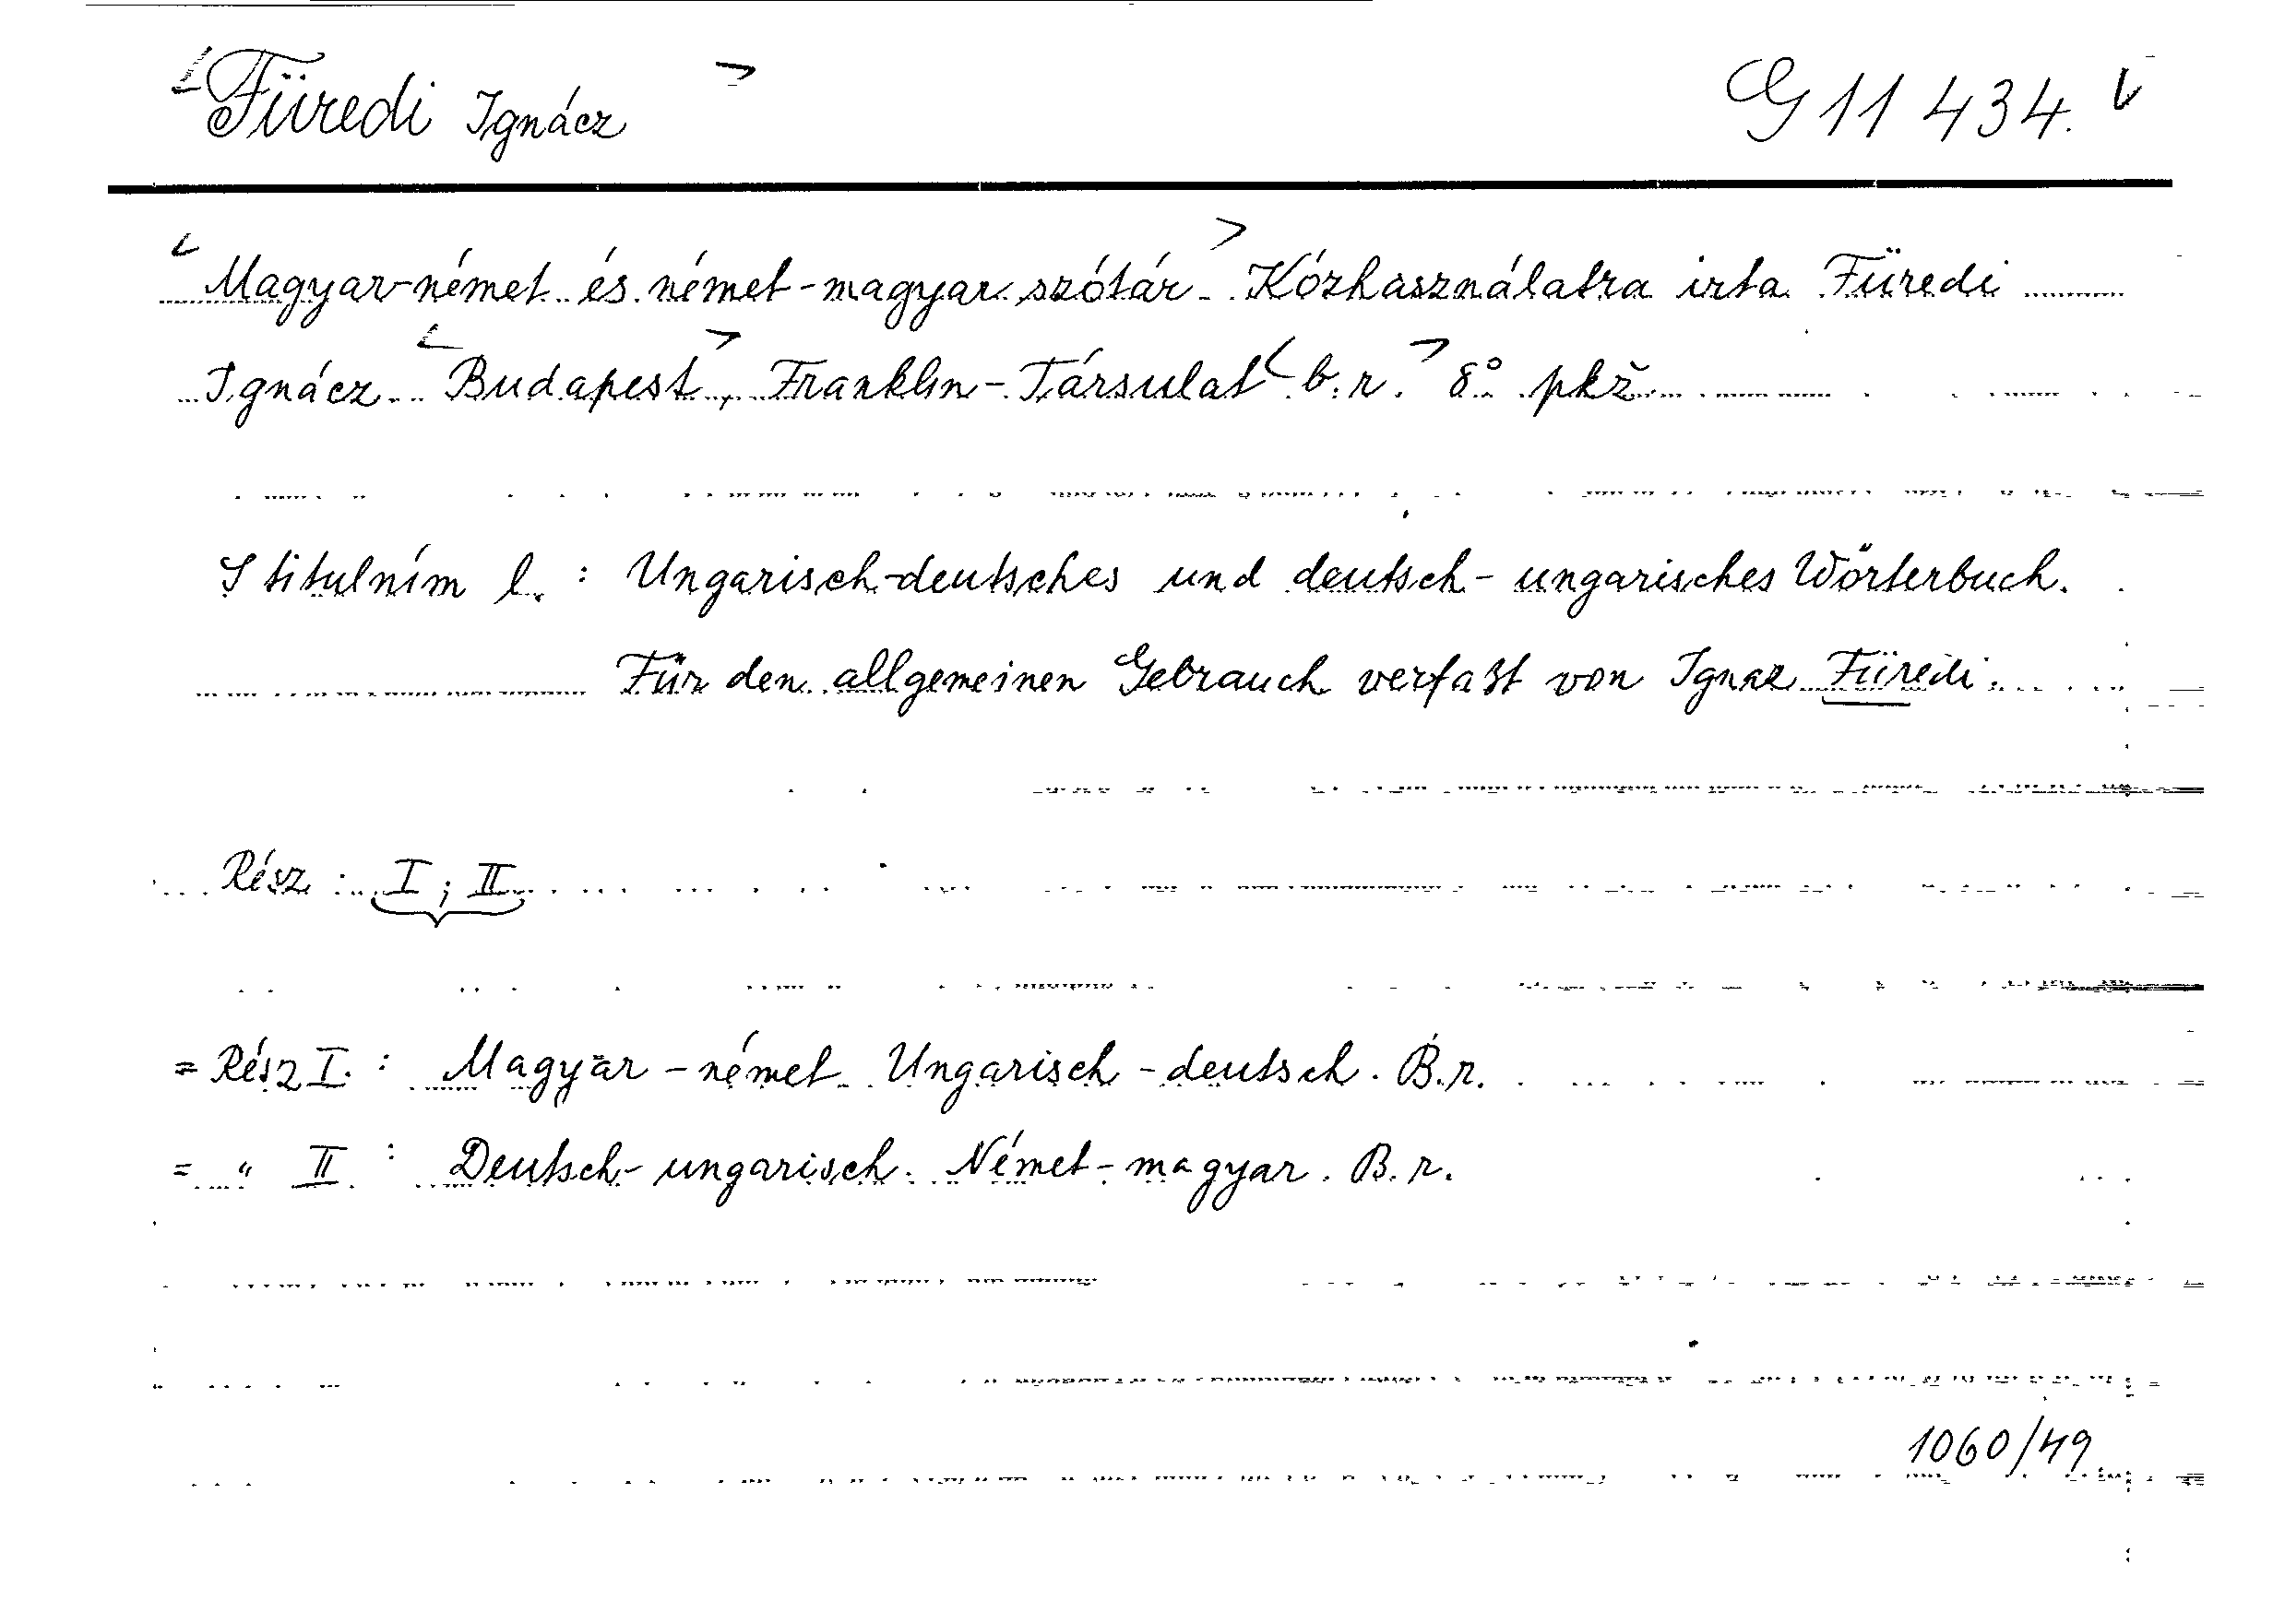 Füredi Ignácz
G 11 434.
Magyar-német és német-magyar szótár. Kózhasználatra irta Füredi
Ignácz. Budapest, Franklin-Társulat b. r. 8° pkž.
S titulním l. : Ungarisch-deutsches und deutsch-ungarisches Wörterbuch.
Für den allgemeinen Gebrauch verfaßt von Ignaz Füredi.
Rész : I ; II
= Rész I. : Magyar-német. Ungarisch-deutsch. B. r.
= " II : Deutsch-ungarisch. Német-magyar. B. r.
1060/49